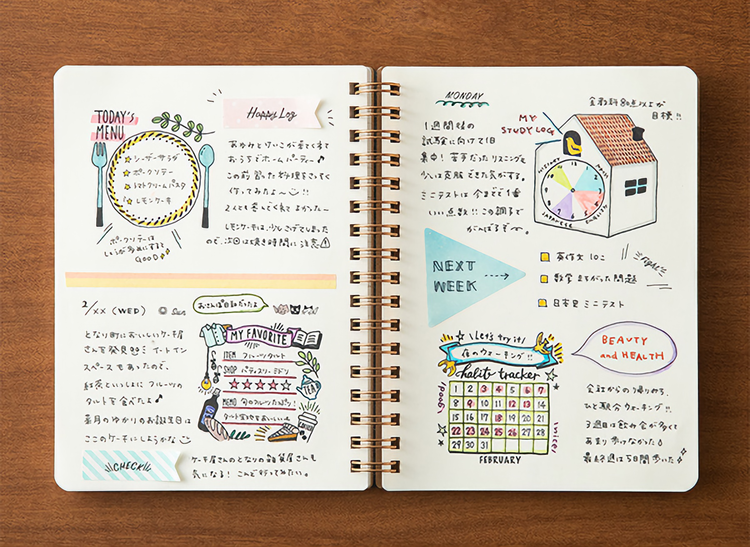 TODAY's
MENU
シーザーサラダ
ポークソテー
トマトクリームパスタ
レモンケーキ
ポークソテーは
しょうが多めにすると
GOOD
Happy Log
あゆみとけいこが遊びに来て
おうちでホームパーティー♪
この前習った料理をさっそく
作ってみたよ〜!!
2人でも喜んでくれてよかった〜
レモンケーキは、少しこげてしまっていた
ので、次回は焼き時間に注意
2/XX (WED) Sun
おさんぽ日記だったよ
となり町においしいケーキ屋
さんを発見!! イートイン
スペースもあったので、
紅茶といっしょに フルーツの
タルトを食べたよ♪
来月のゆかりのお誕生日は
ここのケーキにしようかな
MY FAVORITE
ITEM フルーツタルト
SHOP パティスリー ミドリ
MEMO 旬のフルーツたっぷり!
タルト生地もおいしい
TEA
CHECK!!
ケーキ屋さんのとなりの雑貨屋さんも
気になる! こんど行ってみたい。
MONDAY
1週間後の
試験に向けて1日
集中! 苦手だったリスニングも
少しは克服できた気がする。
ミニテストは 今までで1番
いい点数!! この調子で
がんばるぞ〜
全教科80点以上が
目標!!
MY
STUDY LOG
HISTORY
MATH
JAPANESE
ENGLISH
NEXT
WEEK
英作文 10こ
数学 まちがった問題
日本史 ミニテスト
Fight!
Let's try it!
夜のウォーキング!!
habit tracker
good!
nice!
1 2 3 4 5 6 7
8 9 10 11 12 13 14
15 16 17 18 19 20 21
22 23 24 25 26 27 28
29 30 31
FEBRUARY
BEAUTY
and HEALTH
会社からの帰り道や、
ひと駅分ウォーキング!!
3週目は飲み会が多くて
あまり歩けなかった
最終週は5日間歩いた